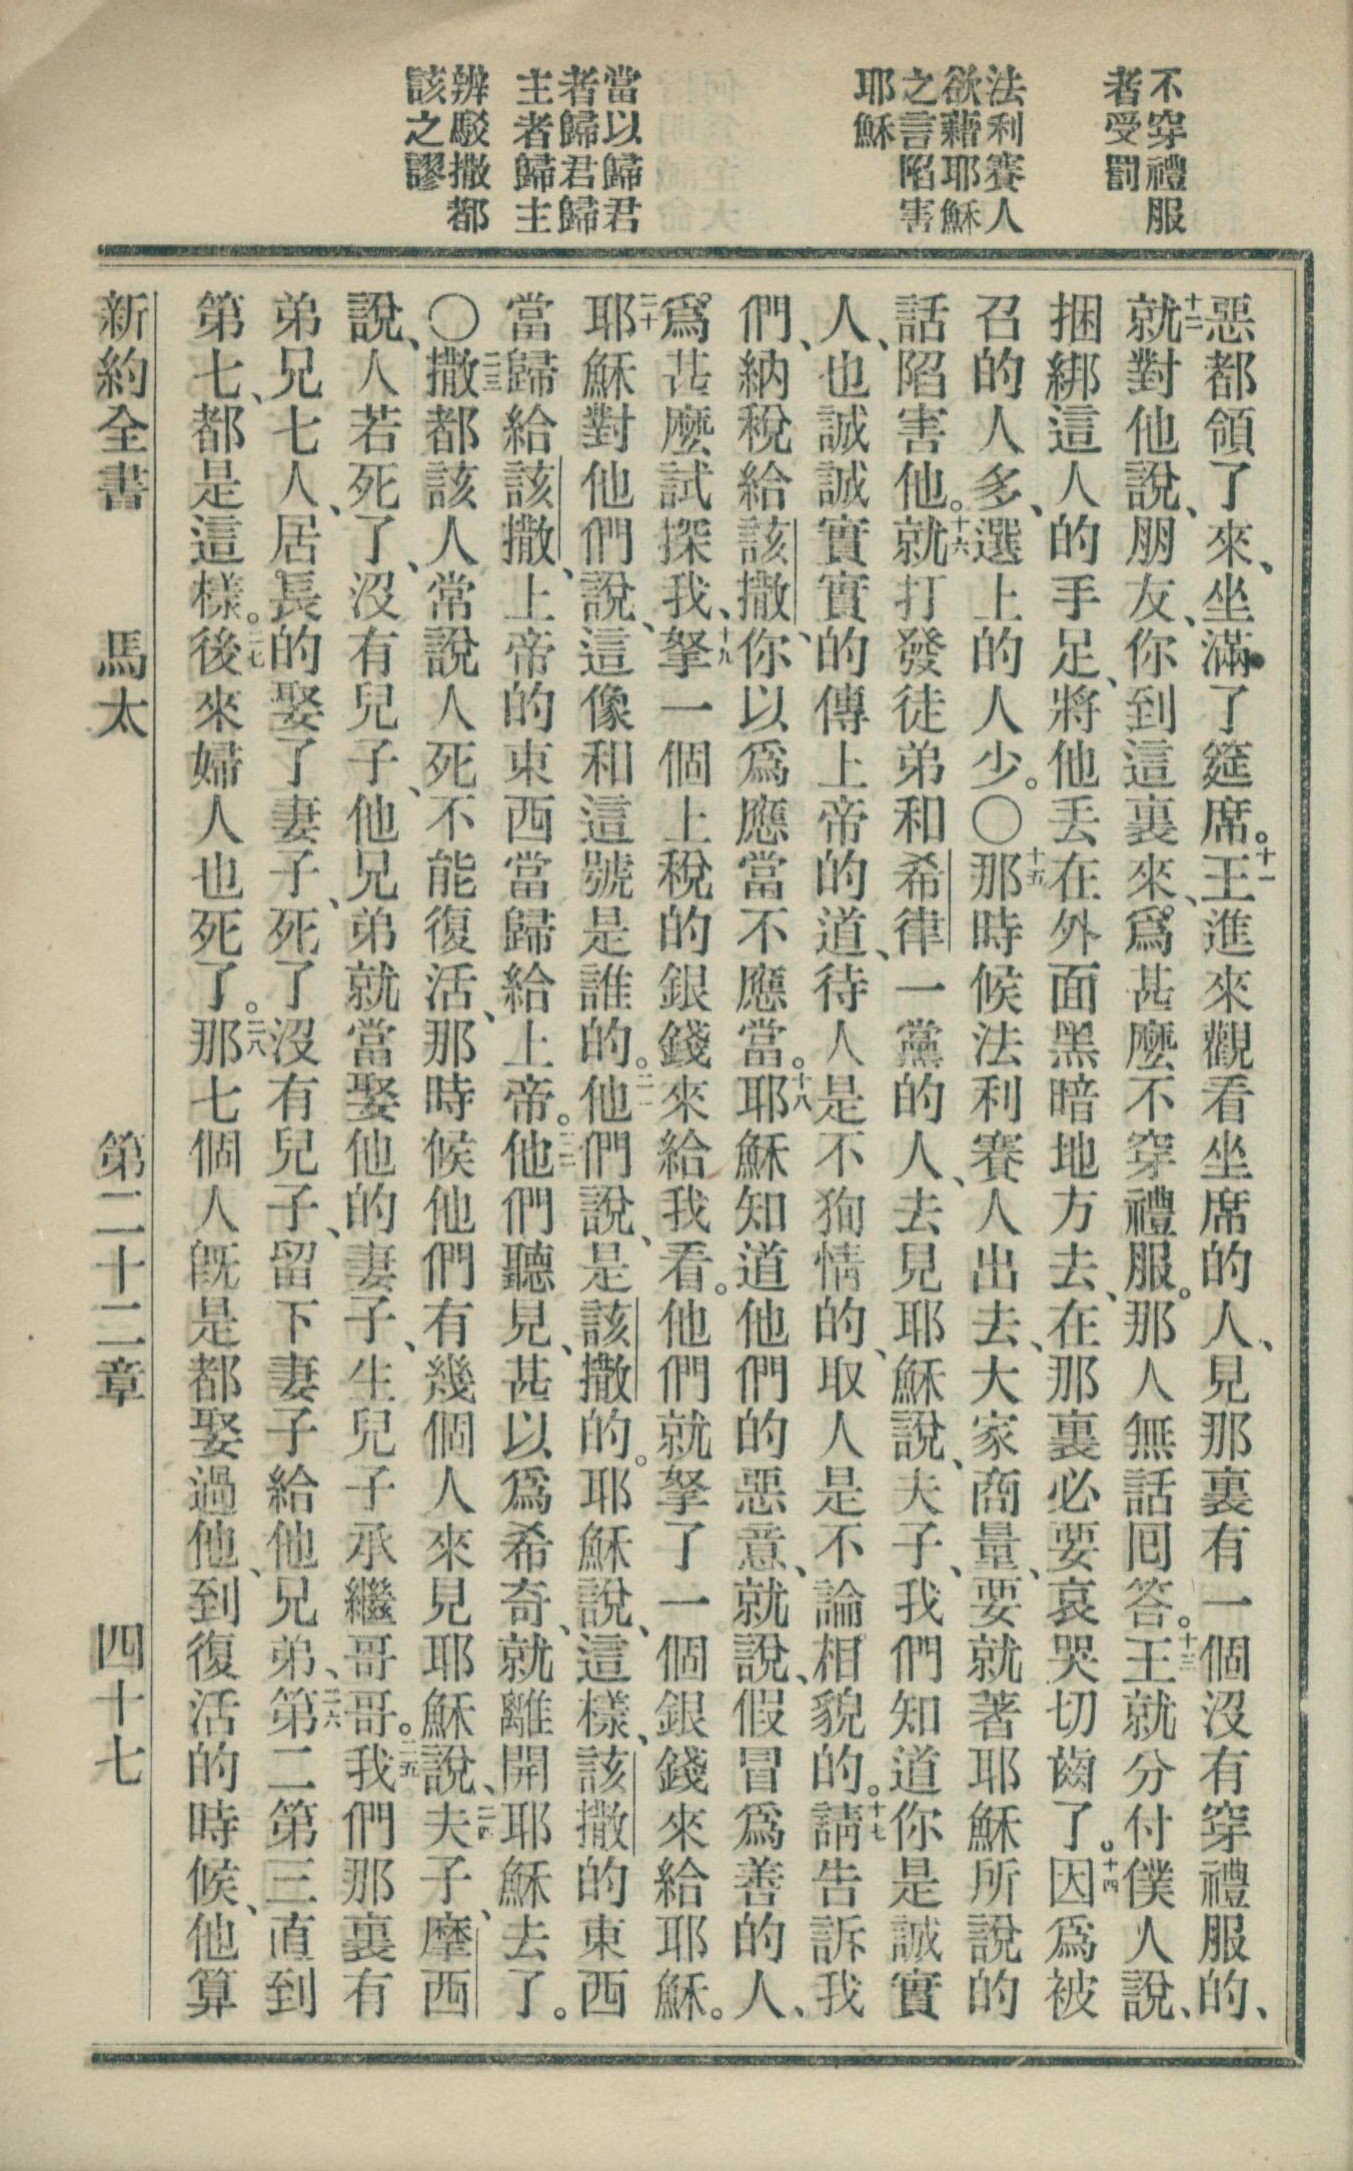 不穿禮服
者受罰
法利賽人
欲藉耶穌
之言陷害
耶穌
當以歸君
者歸君歸
主者歸主
辨駁撒都
該之謬
惡都領了來、坐滿了筵席。十一王進來觀看坐席的人、見那裏有一個沒有穿禮服的、
十二就對他說、朋友、你到這裏來、爲甚麼不穿禮服。那人無話囘答。十三王就分付僕人說、
捆綁這人的手足、將他丟在外面黑暗地方去、在那裏必要哀哭切齒了。十四因爲被
召的人多、選上的人少。〇十五那時候法利賽人出去、大家商量、要就著耶穌所說的
話陷害他。十六就打發徒弟和希律一黨的人、去見耶穌說、夫子、我們知道你是誠實
人、也誠誠實實的傳上帝的道、待人是不狥情的、取人是不論相貌的。十七請告訴我
們、納稅給該撒、你以爲應當不應當。十八耶穌知道他們的惡意、就說、假冒爲善的人、
爲甚麼試探我、十九拏一個上稅的銀錢來給我看。他們就拏了一個銀錢來給耶穌。
二十耶穌對他們說、這像和這號是誰的。二一他們說、是該撒的。耶穌說、這樣、該撒的東西
當歸給該撒、上帝的東西當歸給上帝。二二他們聽見、甚以爲希奇、就離開耶穌去了。
〇二三撒都該人常說人死不能復活、那時候他們有幾個人來見耶穌說、二四夫子、摩西
說、人若死了、沒有兒子、他兄弟就當娶他的妻子、生兒子承繼哥哥。二五我們那裏有
弟兄七人、居長的娶了妻子、死了沒有兒子、留下妻子給他兄弟、二六第二第三直到
第七、都是這樣。二七後來婦人也死了。二八那七個人旣是都娶過他、到復活的時候、他算
新約全書 馬太 第二十二章 四十七